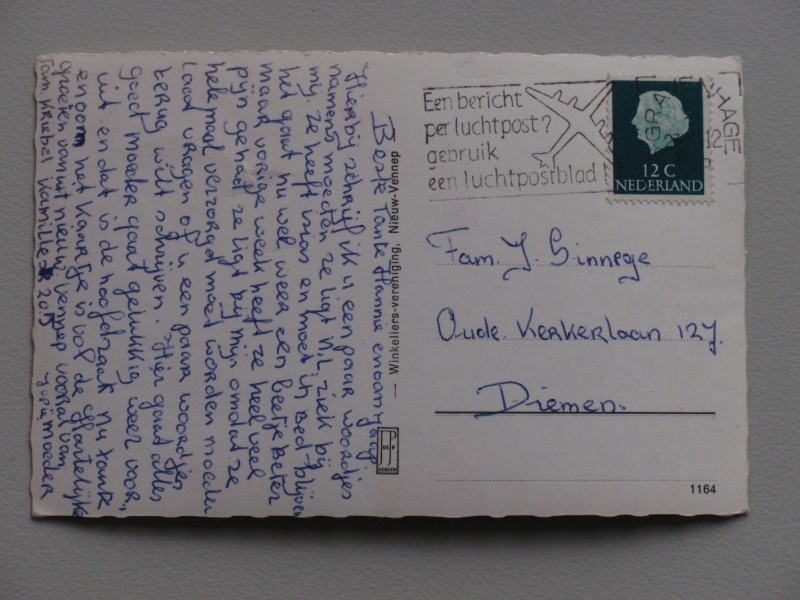 Beste tante Hannie en oom Jaap
Hierbij schrijf ik u een paar woordjes
namens moeder ze ligt n.l. ziek bij
mij. ze heeft en moet in bed blijven
het gaat nu wel weer een beetje beter
maar vorige week heeft ze heel veel
pijn gehad ze ligt bij mijn omdat ze
helemaal verzorgd moet worden moeder
laat vragen of u een paar woordjes
terug wilt schrijven. Hier gaat alles
goed moeder gaat gelukkig weer voor,
uit en dat is de hoofdzaak nu tante
en oom het kaartje is vol de hartelijke
groeten vanuit nieuw vennep vooral van
moeder
— Winkeliers-vereniging, Nieuw-Vennep
JP
Een bericht
per luchtpost?
gebruik
een luchtpostblad
12 C
NEDERLAND
Fam. J. Sinnege
Oude Kerkerlaan 127.
Diemen.
1164